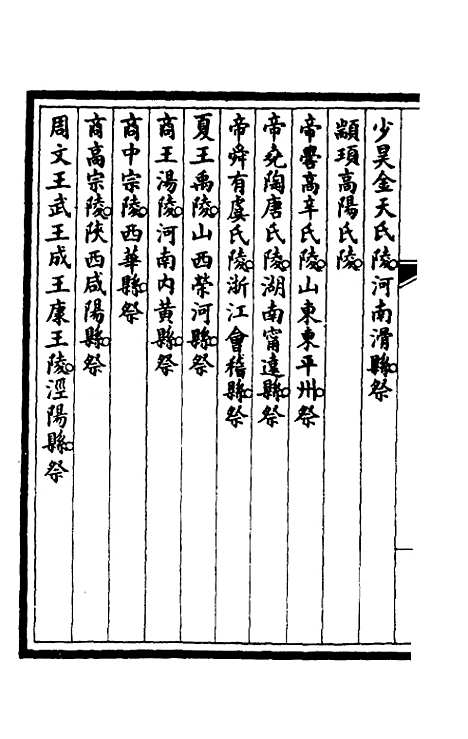 少昊金天氏陵河南滑縣祭
顓頊高陽氏陵
帝嚳高辛氏陵山東東平州祭
帝堯陶唐氏陵湖南甯遠縣祭
帝舜有虞氏陵浙江會稽縣祭
夏王禹陵山西榮河縣祭
商王湯陵河南內黃縣祭
商中宗陵西華縣祭
商高宗陵陝西咸陽縣祭
周文王武王成王康王陵涇陽縣祭